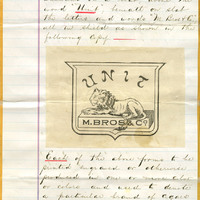 word "Unit" beneath or state
the letters and words "M. Bros & Co
all on shield as shown in the
following Copy
UNIT
M. BROS & Co
Each of the above forms to be
printed engraved or otherwise
produced in one or more colors
or colors and used to denote
a particular brand of